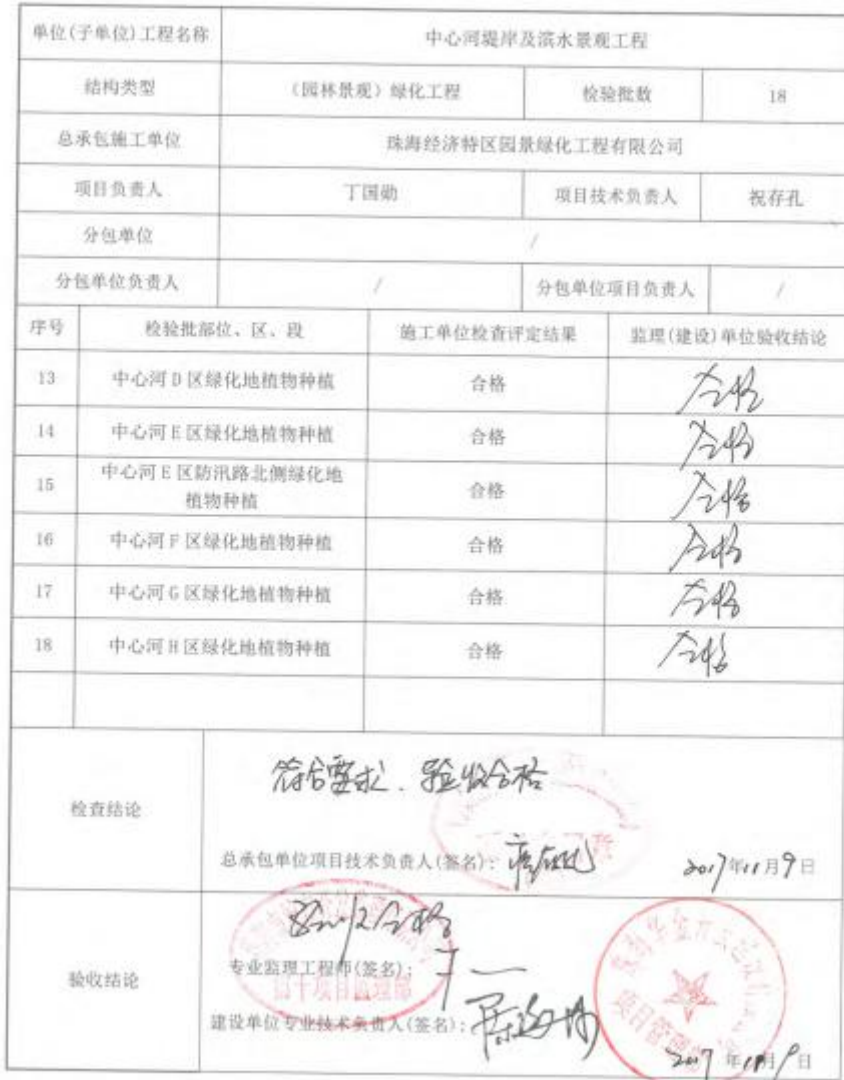 单位(子单位)工程名称 中心河堤岸及滨水景观工程
结构类型 (园林景观)绿化工程 检验批数 18
总承包施工单位 珠海经济特区园景绿化工程有限公司
项目负责人 丁国勋 项目技术负责人 祝存孔
分包单位 /
分包单位负责人 / 分包单位项目负责人 /
序号 检验批部位、区、段 施工单位检查评定结果 监理(建设)单位验收结论
13 中心河D区绿化地植物种植 合格 合格
14 中心河E区绿化地植物种植 合格 合格
15 中心河E区防汛路北侧绿化地
植物种植 合格 合格
16 中心河F区绿化地植物种植 合格 合格
17 中心河G区绿化地植物种植 合格 合格
18 中心河H区绿化地植物种植 合格 合格
符合要求、验收合格
检查结论
总承包单位项目技术负责人(签名): 2017年11月9日
验收合格
专业监理工程师(签名):
验收结论
建设单位专业技术负责人(签名):
2017年11月9日